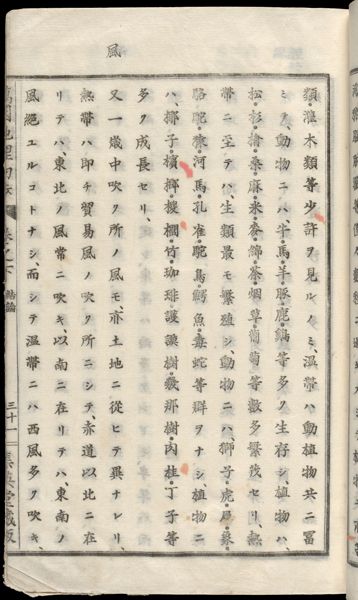 風
類灌木類等少許ヲ見ルノミ、溫帶ハ動植物共ニ富
ミ、動物ニハ、牛馬羊豚鹿鷄等多ク生存シ、植物ハ、
松杉檜桑麻米麥綿茶烟草葡萄等數多繁茂セリ、熱
帶ニ至テハ、生類最モ繁殖シ、動物ニハ、獅子虎犀象
駱駝河馬孔雀駝鳥鰐魚毒蛇等群ヲナシ、植物ニ
ハ、椰子檳榔椶櫚竹珈琲護謨樹規那樹肉桂丁子等
多ク成長セリ、
又一歲中吹ク所ノ風モ、亦土地ニ從ヒテ異ナレリ、
熱帶ハ卽チ貿易風ノ吹ク所ニシテ、赤道以北ニ在
リテハ、東北ノ風常ニ吹キ、以南ニ在リテハ、東南ノ
風絕エルコトナシ、而シテ溫帶ニハ西風多ク吹キ、
卷之下
三十一
集英堂藏版